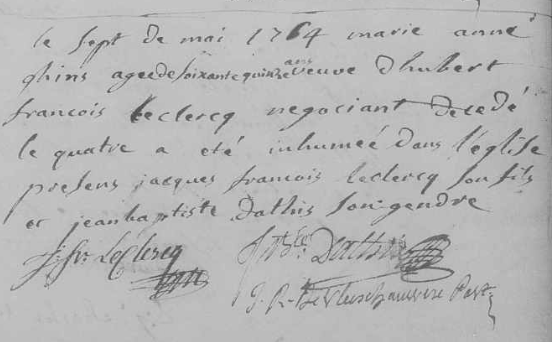 le sept de mai 1764 marie anne
ghins agée de soixante quinze ans veuve d hubert
francois leclercq negociant decedé
le quatre a eté inhumeé dans l'église
presens jacques francois leclercq son fils
et jean baptiste Dathis son gendre
J. fr. LeClercq J bte Dathis